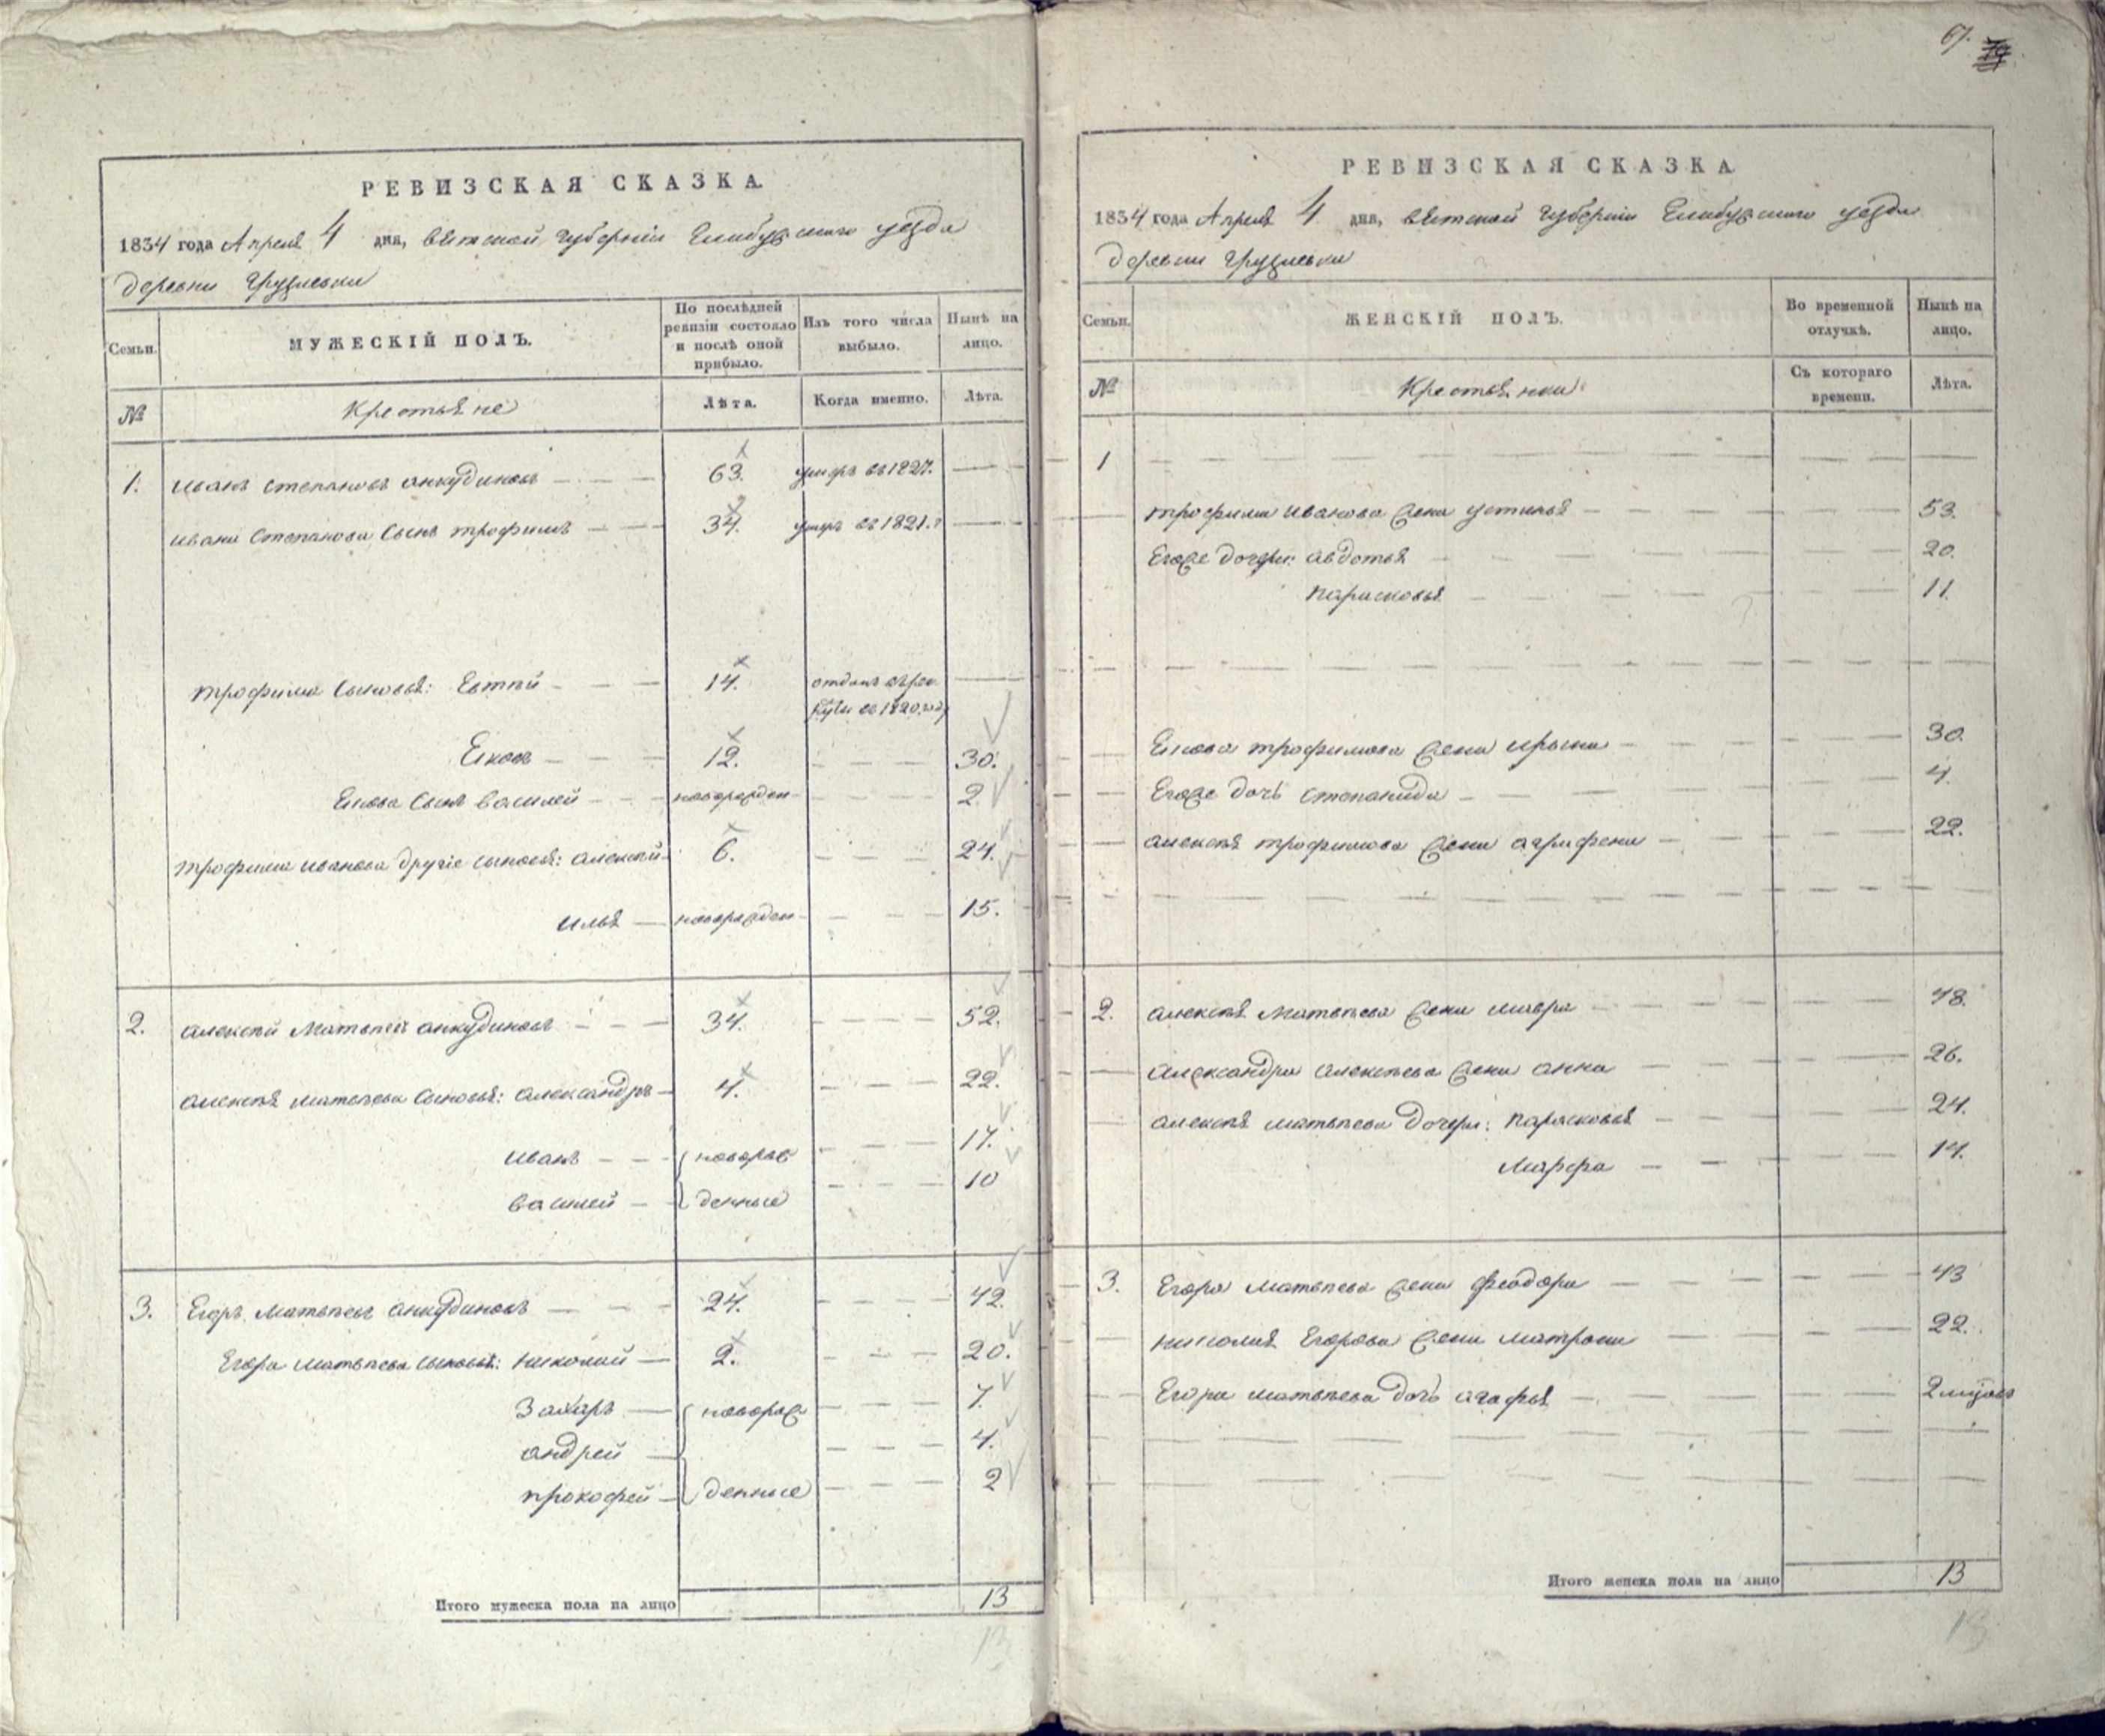 67.
РЕВИЗСКАЯ СКАЗКА.
1834 года Апреля 4 дня, вятской губернии Елабужского уезда
деревни
Семьи. МУЖЕСКІЙ ПОЛЪ. По послѣдней ревизіи состояло и послѣ оной прибыло. Изъ того числа выбыло. Нынѣ на лицо.
№ Крестьяне Лѣта. Когда именно. Лѣта.
1. Иванъ Степановъ Анкудиновъ 63. умеръ въ 1827.
Ивана Степанова Сынъ Трофимъ 34. умеръ въ 1821.
Трофима Сыновья: Евтей 14. отданъ въ рекруты въ 1820
Яковъ 12. 30.
Якова Сынъ Василей новорожден 2.
Трофима Иванова другіе сыновья: Алексѣй 6. 24.
Илья новорожден 15.
2. Алексѣй Матвѣевъ Анкудиновъ 34. 52.
Алексѣя Матвѣева Сыновья: Александръ 4. 22.
Иванъ новорож 17.
Василей денные 10
3. Егоръ Матвѣевъ Анкудиновъ 24. 42.
Егора Матвѣева сыновья: Николай 2. 20.
Захаръ новорож 7.
Андрей 4.
Прокофей денные 2
Итого мужеска пола на лицо 13
13
РЕВИЗСКАЯ СКАЗКА
1834 года Апреля 4 дня, вятской губернии Елабужского уезда
деревни
Семьи. ЖЕНСКІЙ ПОЛЪ. Во временной отлучкѣ. Нынѣ на лицо.
№ Крестьянки Съ котораго времени. Лѣта.
1
Трофима Иванова жена Устинья 53.
Егоже дочери: Авдотья 20.
Парасковья 11.
Якова Трофимова жена Ирина 30.
Егоже дочь Степанида 4.
Алексѣя Трофимова жена Аграфена 22.
2. Алексѣя Матвѣева жена Мавра 48.
Александра Алексѣева жена Анна 26.
Алексѣя Матвѣева дочери: Парасковья 24.
Марфа 14.
3. Егора Матвѣева жена Феодора 43
Николая Егорова жена Матрона 22.
Егора Матвѣева дочь Агафья 2
Итого женска пола на лицо 13
13